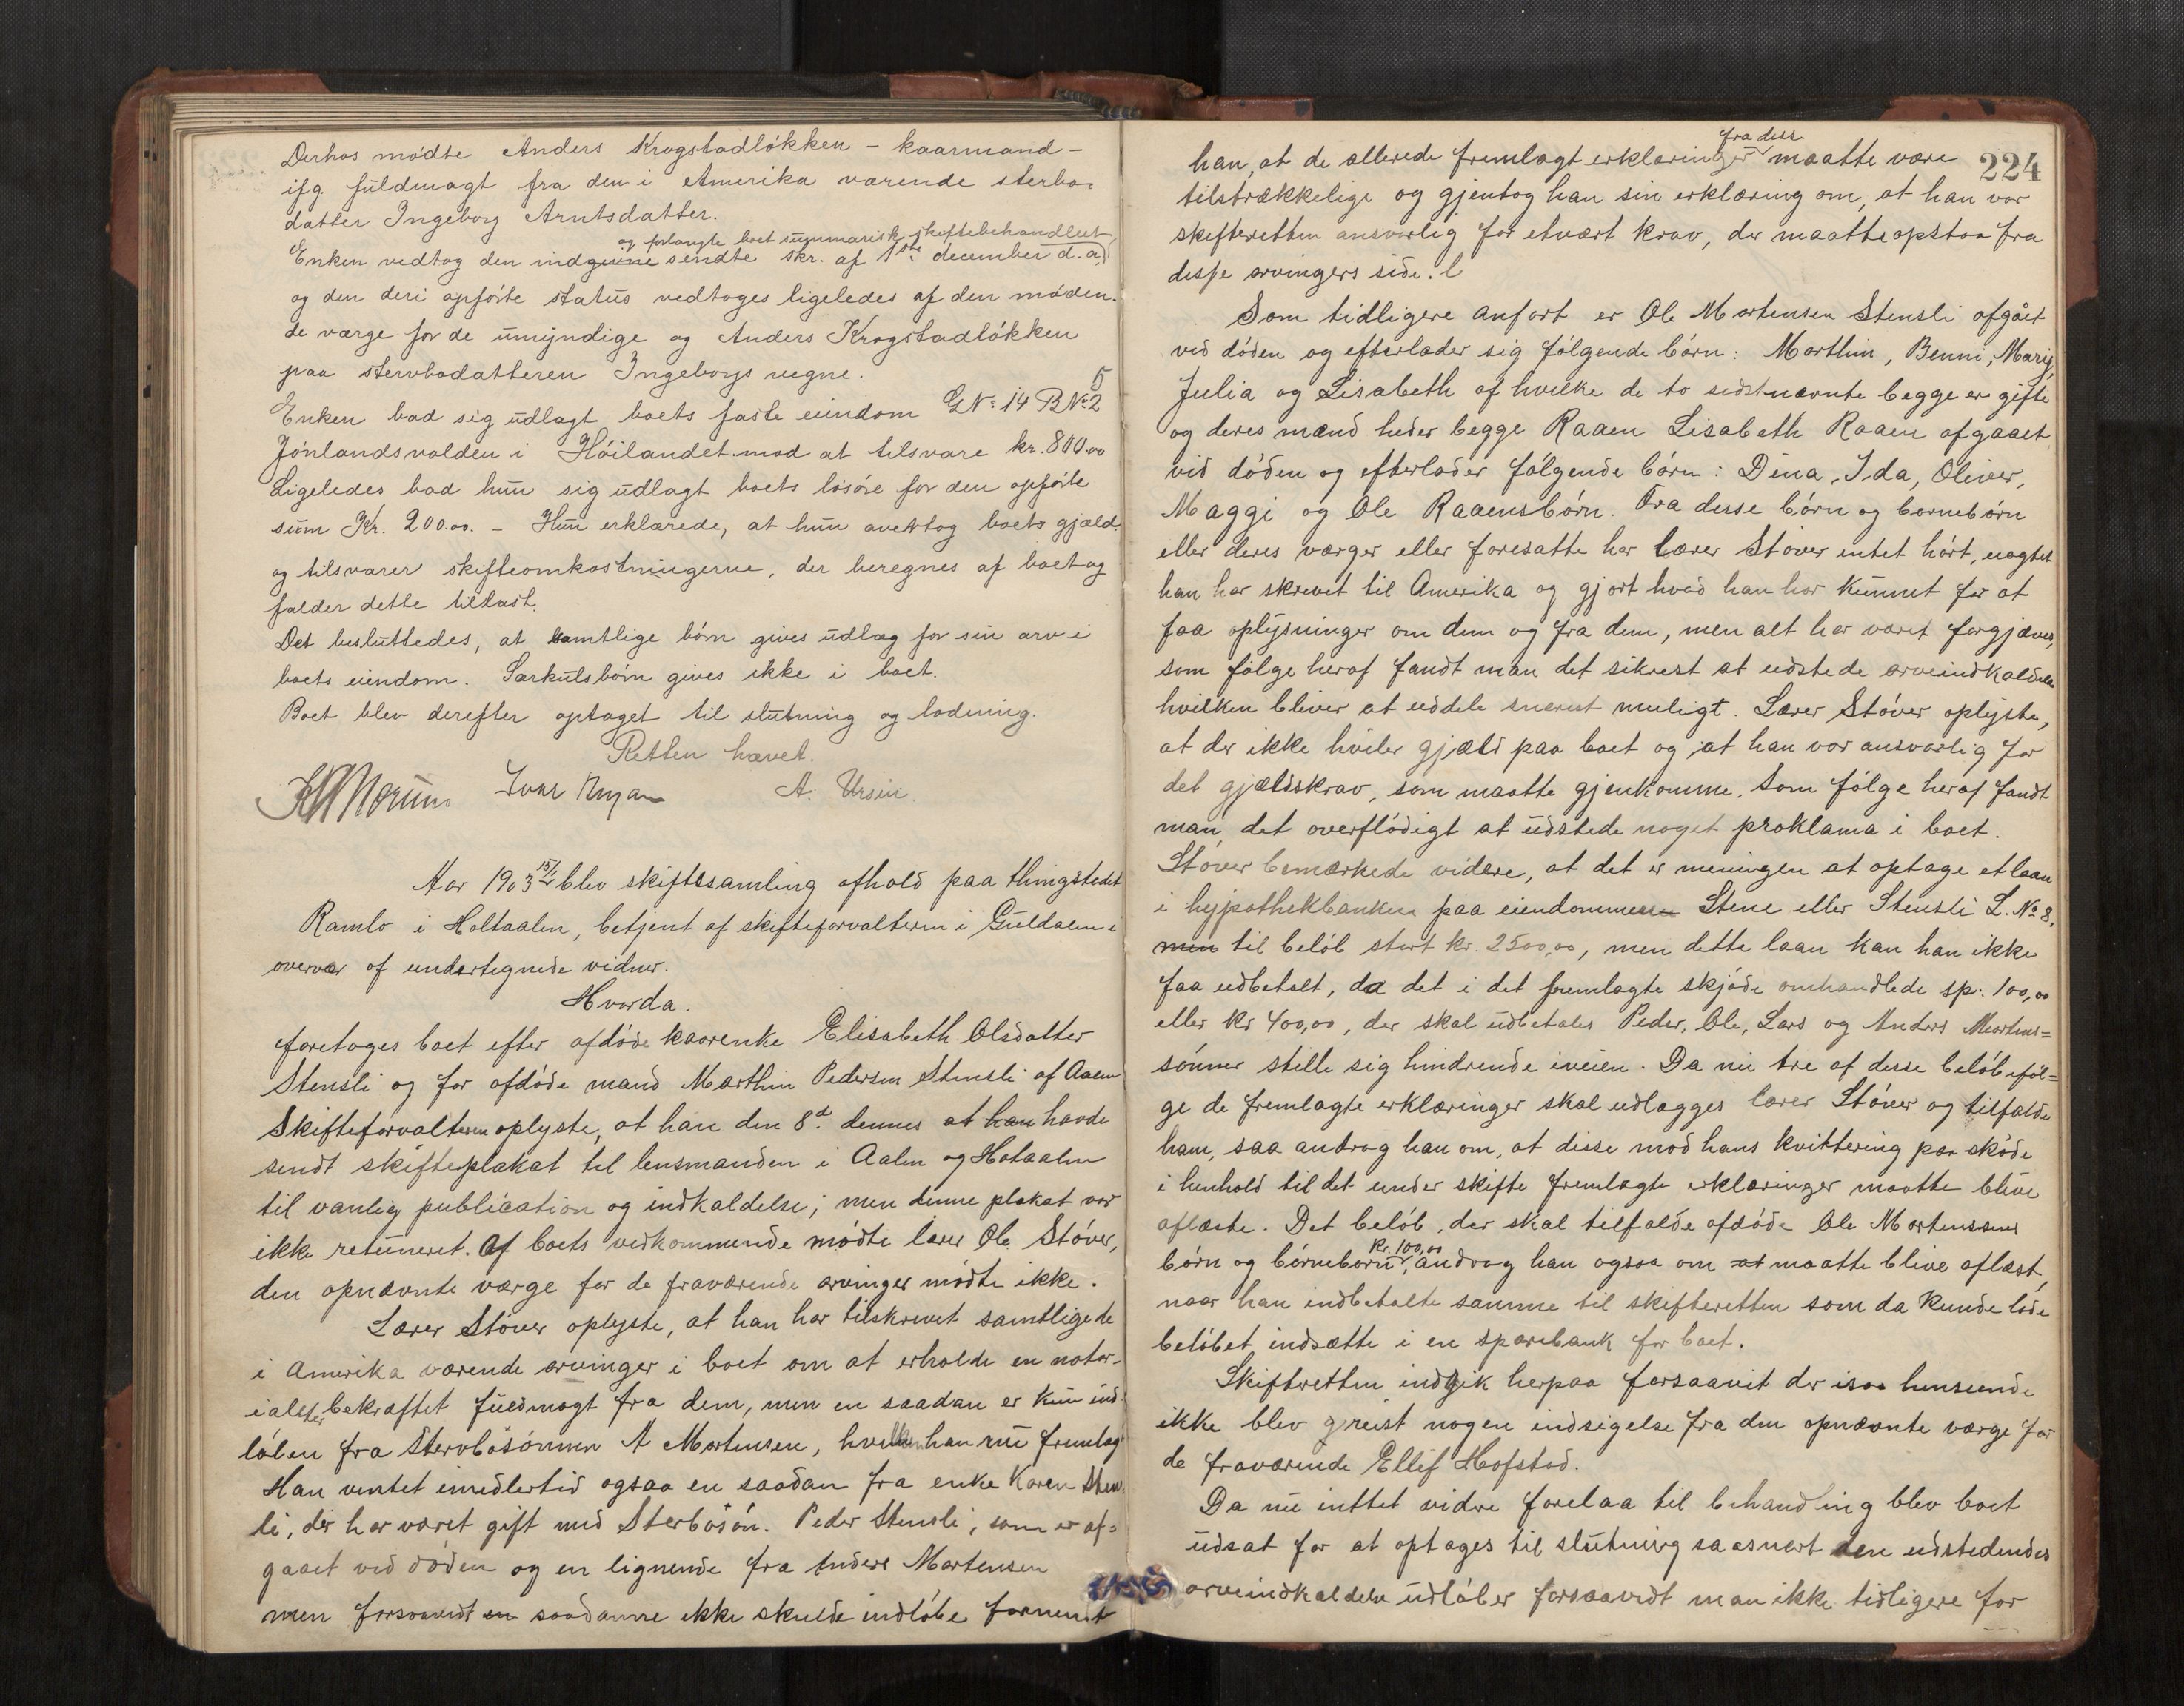 Derhos mødte Anders Krogstadløkken - kaarmand -
ifg. fuldmagt fra den i Amerika værende sterbo-
datter Ingeborg Arntsdatter.
og forlangte boet summarisk skiftebehandlet
Enken vedtog den indgivne sendte skr. af 1ste december d.a.
og den deri opførte status vedtoges ligeledes af den møden-
de værge for de umyndige og Anders Krogstadløkken
paa stervbodatteren Ingeborgs vegne.
Enken bad sig udlagt boets faste eiendom GNo 14 BNo 2 5
Jónlandsvolden i Høilandet mod at tilsvare kr. 800.00
Ligeledes bad hun sig udlagt boets løsøre for den opførte
sum Kr. 200.00. - Hun erklærede, at hun overtog boets gjæld
og tilsvarer skifteomkostningerne, der beregnes af boet og
falder dette tillast.
Det besluttedes, at samtlige børn gives udlæg for sin arv i
boets eiendom. Særkulsbørn gives ikke i boet.
Boet blev derefter optaget til slutning og lodning.
Retten hævet.
Ivar A. Ursin.
Aar 1903 15/1 blev skiftesamling afhold paa thingstedet
Ramlo i Holtaalen, betjent af skifteforvalteren i Guldalen i
overvær af undertegnede vidner.
Hvorda.
foretoges boet efter afdøde kaarenke Elisabeth Olsdatter
Stensli og for afdøde mand Marthin Pedersen Stensli af Aalen
Skifteforvalteren oplyste, at han den 8d. dennes at han havde
sendt skifteplakat til lensmanden i Aalen og Hotaalen
til vanlig publication og indkaldelse; men denne plakat var
ikke retuneret. Af boets vedkommende mødte lærer Ole Støver,
den opnævnte værge for de fraværende arvinger mødte ikke.
Lærer Støver oplyste, at han har tilskrevet samtlige de
i Amerika værende arvinger i boet om at erholde en notar-
ialiter bekræftet fuldmagt fra dem, men en saadan er kun ind-
løben fra Stervbosønnen A Martensen, hvilken han nu fremlag
Han ventet imidlertid ogsaa en saadan fra enke Karen Sten-
li, der har været gift med Sterbosøn. Peder Stensli, som er af-
gaaet ved døden og en lignende fra Anders Martensen
men forsaavidt en saadanne ikke skulde indløbe forment
224
fra disse
han, at de allerede fremlagt erklæringer maatte være
tilstrækkelige og gjentog han sin erklæring om, at han var
skifteretten ansvarlig for etvært krav, der maatte opstaa fra
disse arvingers side.
Som tidligere anført er Ole Martensen Stensli afgået
ved døden og efterlader sig følgende børn: Marthin, Benni, Mary,
Julia og Lisabeth af hvilke de to sidstnævnte begge er gifte
og deres mænd heder begge Raaen Lisabeth Raaen afgaaet
ved døden og efterlader følgende børn: Dina, Ida, Oliver,
Maggi og Ole Raaensbørn. Fra disse børn og børnebørn
eller deres værger eller foresatte har lærer Støver intet hørt, uagtet
han har skrevet til Amerika og gjort hvad han har kunnet for at
faa oplysninger om dem og fra dem, men alt har været forgjæves,
som følge heraf fandt man det sikrest at udstede arveindkaldelse
hvilken bliver at uddele snarest muligt. Lærer Støver oplyste,
at der ikke hviler gjæld paa boet og at han var ansvarlig for
det gjældskrav, som maatte gjenkomme. Som følge heraf fandt
man det overflødigt at udstede noget proklama i boet.
Støver bemærkede videre, at det er meningen at optage et laan
i hypothekbanken paa eiendommen Stene eller Stensli L. No 8,
men til beløb stort kr. 2500,00, men dette laan kan han ikke
faa udbetalt, da det i det fremlagte skjøde omhandlede sp. 100,00
eller kr 400,00, der skal udbetales Peder, Ole, Lars og Anders Martens=
sønner stille sig hindrende iveien. Da nu tre af disse beløb iføl=
ge de fremlagte erklæringer skal udlægges lærer Støver og tilfalde
ham, saa androg han om, at disse mod hans kvittering paa skøde
i henhold til det under skifte fremlagte erklæringer maatte blive
aflæste. Det beløb, der skal tilfalde afdøde Ole Martensens
kr. 100,00
børn og børnebørn, androg han ogsaa om at maatte blive aflæst,
naar han indbetalte samme til skifteretten som da kunde lade
beløbet indsætte i en sparebank for boet.
Skifteretten indgik herpaa forsaavit der isaa henseende
ikke blev greist nogen indsigelse fra den opnævnte værge for
de fraværende Ellef Hofstad.
Da nu inttet vidre forelaa til behandling blev boet
udsat for at optages til slutning saasnart den udstedendes
arveindkaldelse udløber forsaavidt man ikke tidligere for